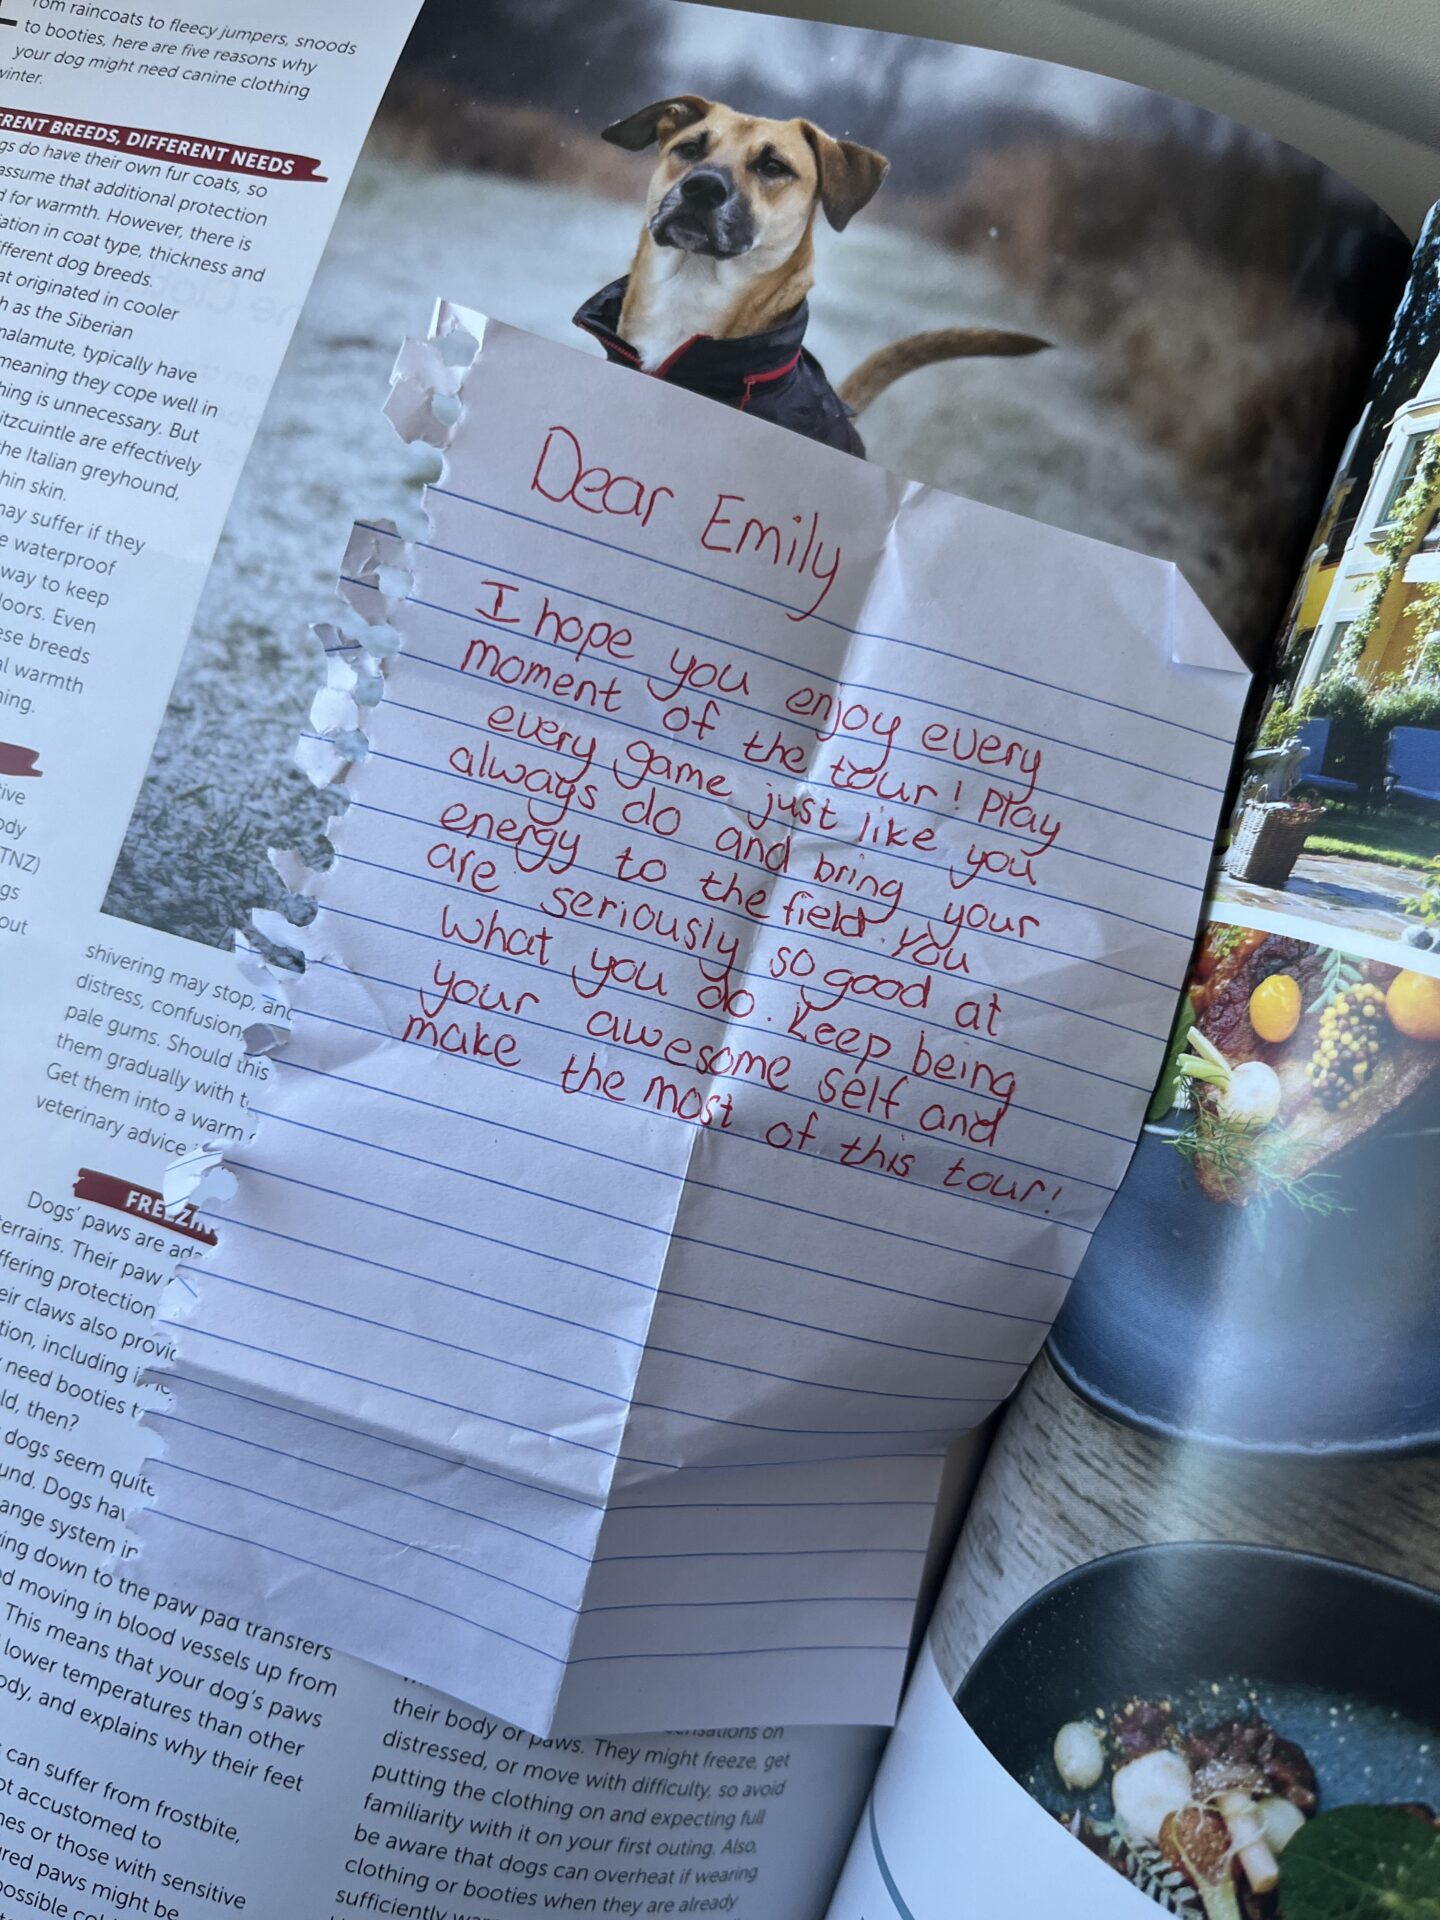 rom raincoats to fleecy jumpers, snoods
to booties, here are five reasons why
your dog might need canine clothing
winter.
RENT BREEDS, DIFFERENT NEEDS
gs do have their own fur coats, so
assume that additional protection
d for warmth. However, there is
iation in coat type, thickness and
ifferent dog breeds.
at originated in cooler
h as the Siberian
malamute, typically have
meaning they cope well in
hing is unnecessary. But
itzcuintle are effectively
the Italian greyhound,
thin skin.
may suffer if they
e waterproof
way to keep
doors. Even
ese breeds
al warmth
ning.
tive
ody
TNZ)
gs
out
shivering may stop, and
distress, confusion,
pale gums. Should this
them gradually with t
Get them into a warm
veterinary advice
FREEZIN
Dogs' paws are ada
terrains. Their paw
ffering protection
eir claws also provid
tion, including i
need booties t
ld, then?
dogs seem quite
und. Dogs hav
ange system in
ing down to the paw pad transfers
d moving in blood vessels up from
This means that your dog's paws
lower temperatures than other
ody, and explains why their feet
can suffer from frostbite,
ot accustomed to
nes or those with sensitive
red paws might be
possible col
Dear Emily
I hope you enjoy every
moment of the tour! Play
every game just like you
always do and bring your
energy to the field. You
are seriously so good at
what you do. Keep being
your awesome self and
make the most of this tour!
sensations on
their body or paws. They might freeze, get
distressed, or move with difficulty, so avoid
putting the clothing on and expecting full
familiarity with it on your first outing. Also,
be aware that dogs can overheat if wearing
clothing or booties when they are already
sufficiently wa